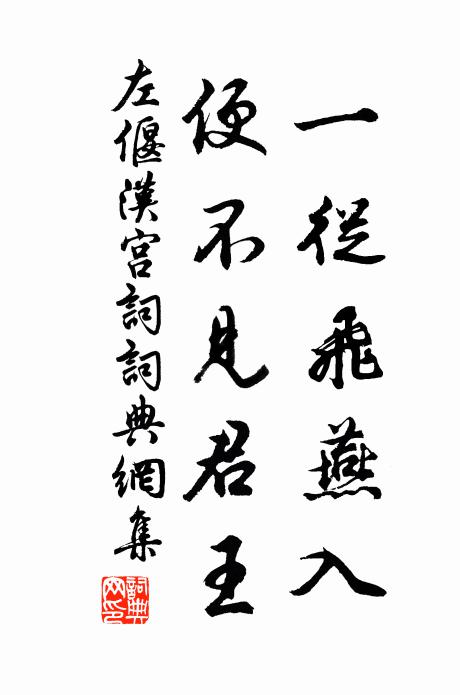 一從飛燕入
便不見君王
左偃漢宮詞詞典網集
詞典網印